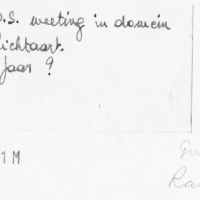 O.S. meeting in domein
Lichtaart.
Jaar ?
1 M